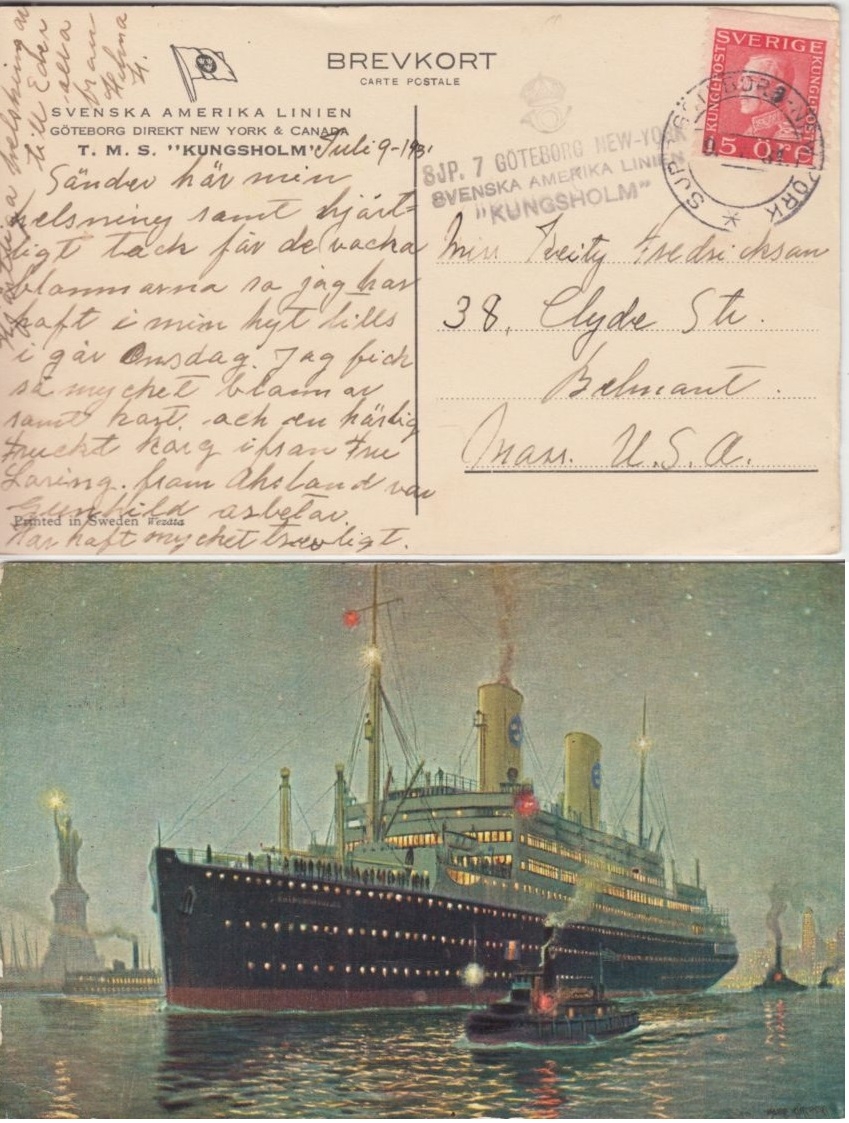 BREVKORT
CARTE POSTALE
SVENSKA AMERIKA LINIEN
GÖTEBORG DIREKT NEW YORK & CANADA
T. M. S. "KUNGSHOLM"
Juli 9-1931
Sänder här min
helsning samt hjärt-
ligt tack för de vackra
blommorna so jag har
haft i min hyt tills
i går Onsdag. Jag fick
så mycket blommor
samt kort. och en härlig
fruckt korg ifrån Fru
Loring. fram
Gunhild arbetar.
Har haft mycket trevligt.
Hjärtliga helsningar
till Eder
alla
från
Helma
H.
Printed in Sweden Wezäta
SVERIGE
KUNGL·POST
KUNGL·POST
15 ÖRE
SJP. GÖTEBORG-NEW-YORK
SJP. 7 GÖTEBORG NEW-YORK
SVENSKA AMERIKA LINIEN
"KUNGSHOLM"
Miss Fredricksan
38, Clyde Str.
Belmont.
Mass. U.S.A.